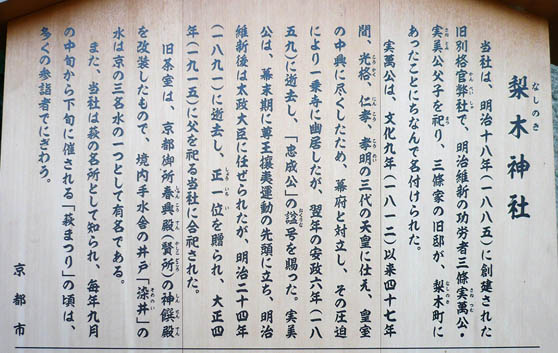 梨木神社
なしのき
当社は、明治十八年（一八八五）に創建された
旧別格官弊社で、明治維新の功労者三條実萬公・
実美公父子を祀り、三條家の旧邸が、梨木町に
あったことにちなんで名付けられた。
実萬公は、文化九年（一八一二）以来四十七年
間、光格、仁孝、孝明の三代の天皇に仕え、皇室
の中興に尽くしたため、幕府と対立し、その圧迫
により一乗寺に幽居したが、翌年の安政六年（一八
五九）に逝去し、「忠成公」の諡号を賜った。実美
公は、幕末期に尊王攘夷運動の先頭に立ち、明治
維新後は太政大臣に任ぜられたが、明治二十四年
（一八九一）に逝去し、正一位を贈られ、大正四
年（一九一五）に父を祀る当社に合祀された。
旧茶室は、京都御所春興殿（賢所）の神饌殿
を改装したもので、境内手水舎の井戸「染井」の
水は京の三名水の一つとして有名である。
また、当社は萩の名所として知られ、毎年九月
の中旬から下旬に催される「萩まつり」の頃は、
多くの参詣者でにぎわう。
京都市